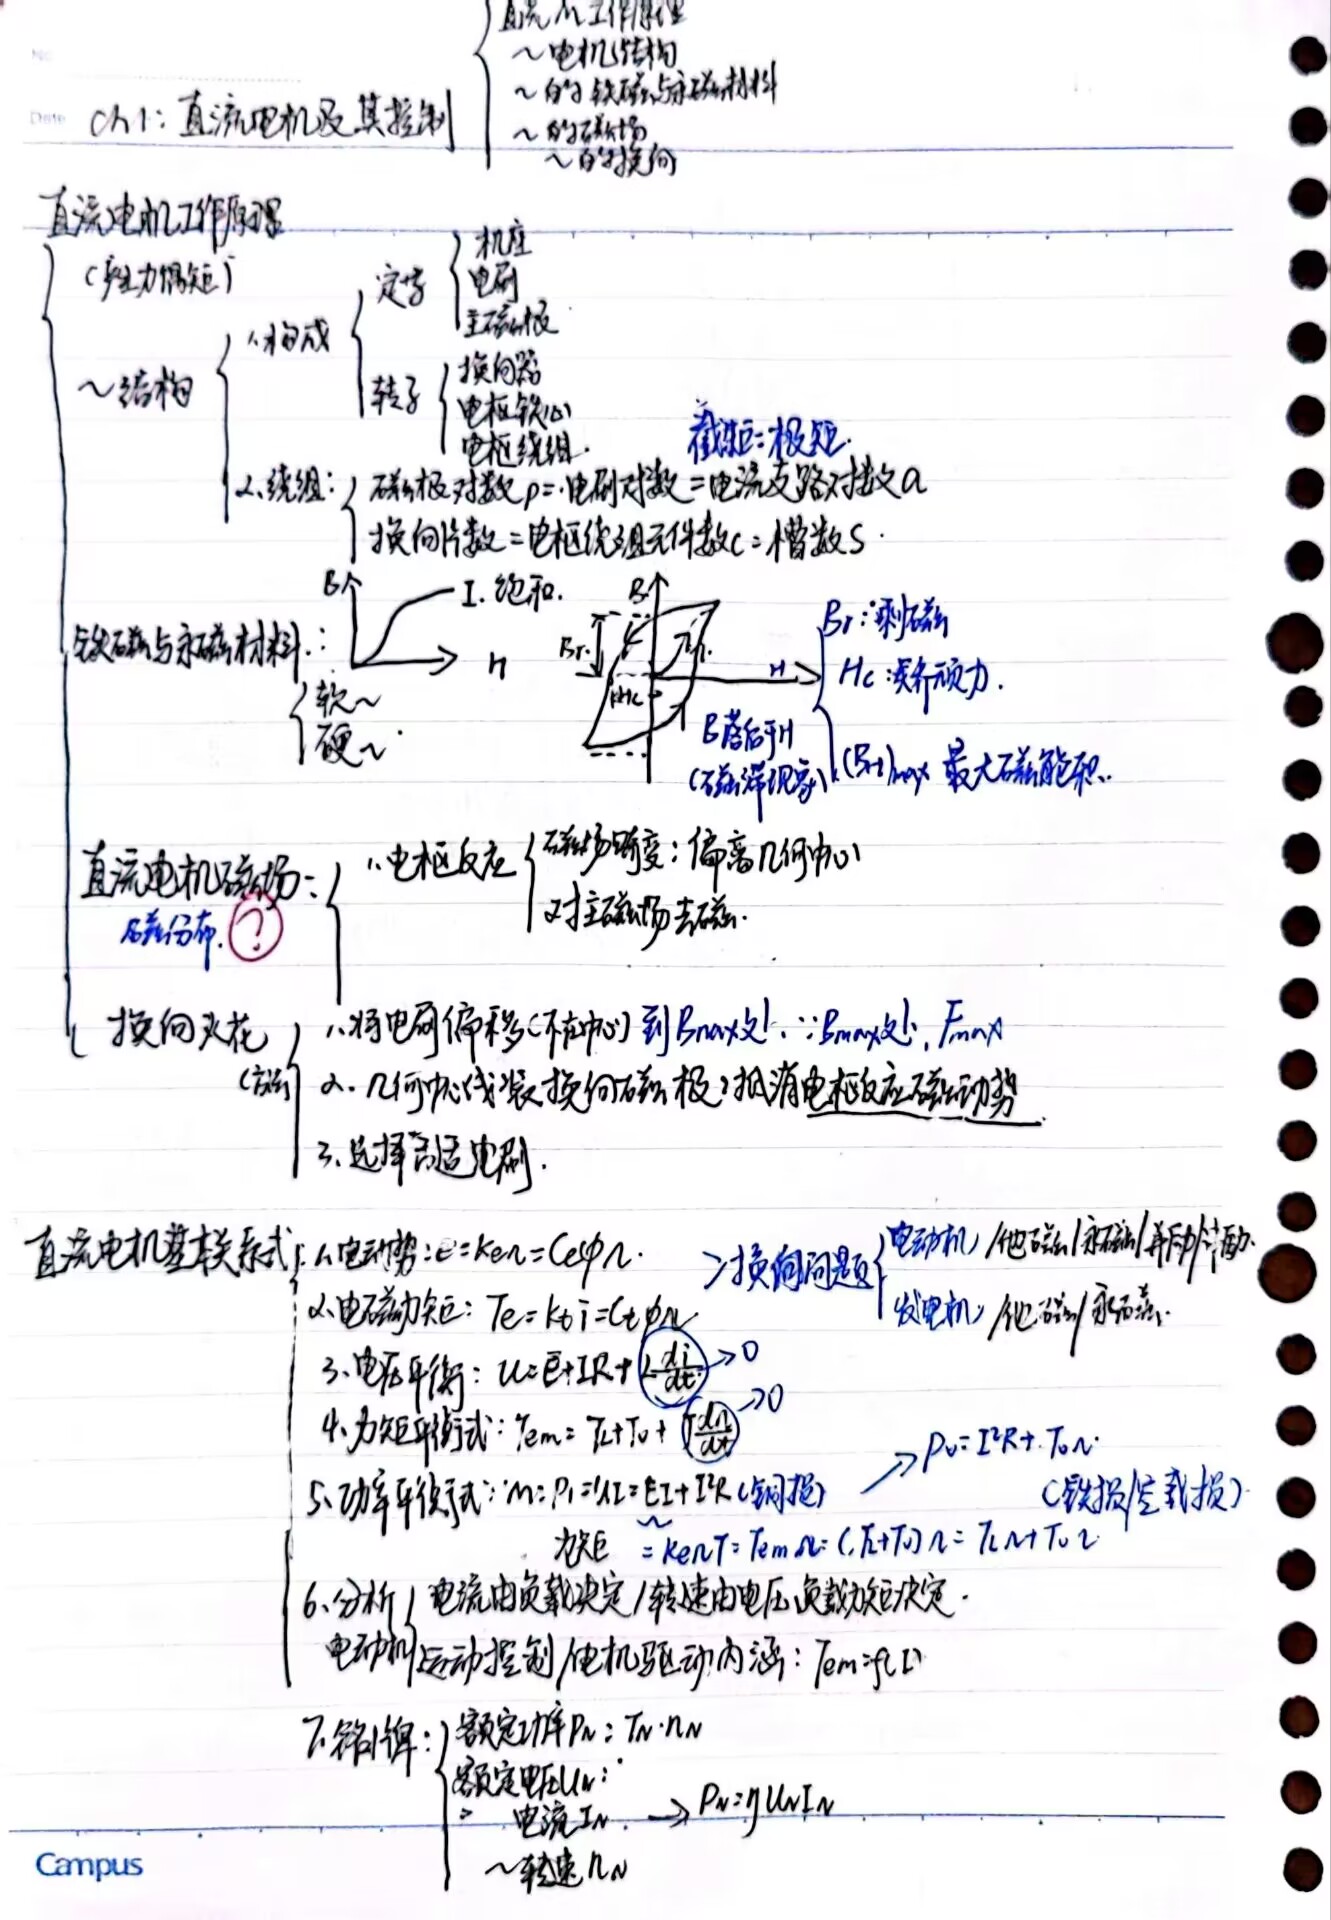 No.
Date
Ch1: 直流电机及其控制
直流~工作原理
~电机结构
~的铁磁与永磁材料
~的磁场
~的换向
直流电机工作原理
(产生力偶矩)
~结构
1.构成
定子
机座
电刷
主磁极
转子
换向器
电枢铁心
电枢绕组.
截距=极距.
2.绕组:
磁极对数p=电刷对数=电流支路对数a
换向片数=电枢绕组元件数C=槽数S.
铁磁与永磁材料:
B
I.饱和.
H
软~
硬~
B
Br.
Hc
H
B落后于H
(磁滞现象)
Br:剩磁
Hc:矫顽力.
(BH)max 最大磁能积.
直流电机磁场:
磁分布. ?
1.电枢反应
磁场畸变:偏离几何中心
对主磁场去磁.
换向火花
(方法
1.将电刷偏移(不在中心)到Bmax处.∵Bmax处,Fmax
2.几何中心线装换向磁极,抵消电枢反应磁动势
3.选择合适电刷.
直流电机基本关系式:
1.电动势:e=Ken=Ceφn.
>换向问题
电动机/他磁/永磁/并励/串励.
发电机/他磁/永磁.
2.电磁力矩:Te=kti=Ctφn
3.电压平衡:U=E+IR+L di/dt →0
4.力矩平衡式:Tem=TL+T0+J dn/dt →0
5.功率平衡式:P1=UI=EI+I²R(铜损)
→Pv=I²R+T0n.
(铁损/空载损)
力矩 =KenI=Temn=(TL+T0)n=TLn+T0n
6.分析电动机
电流由负载决定/转速由电压,负载力矩决定.
运动控制/电机驱动内涵:Tem=f(I)
7.铭牌:
额定功率PN:TN·nN
额定电压UN:
电流IN → PN=ηUNIN
~转速nN
Campus